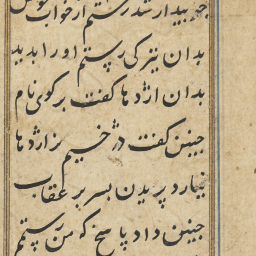 چو بیدار شد رستم از خواب خوش
بدان تیز کی رستم او را بدید
بدان اژدها گفت برگوی نام
چنین گفت دژخیم نر اژدها
نیارد پریدن بسر بر عقاب
چنین داد پاسخ که من رستمم